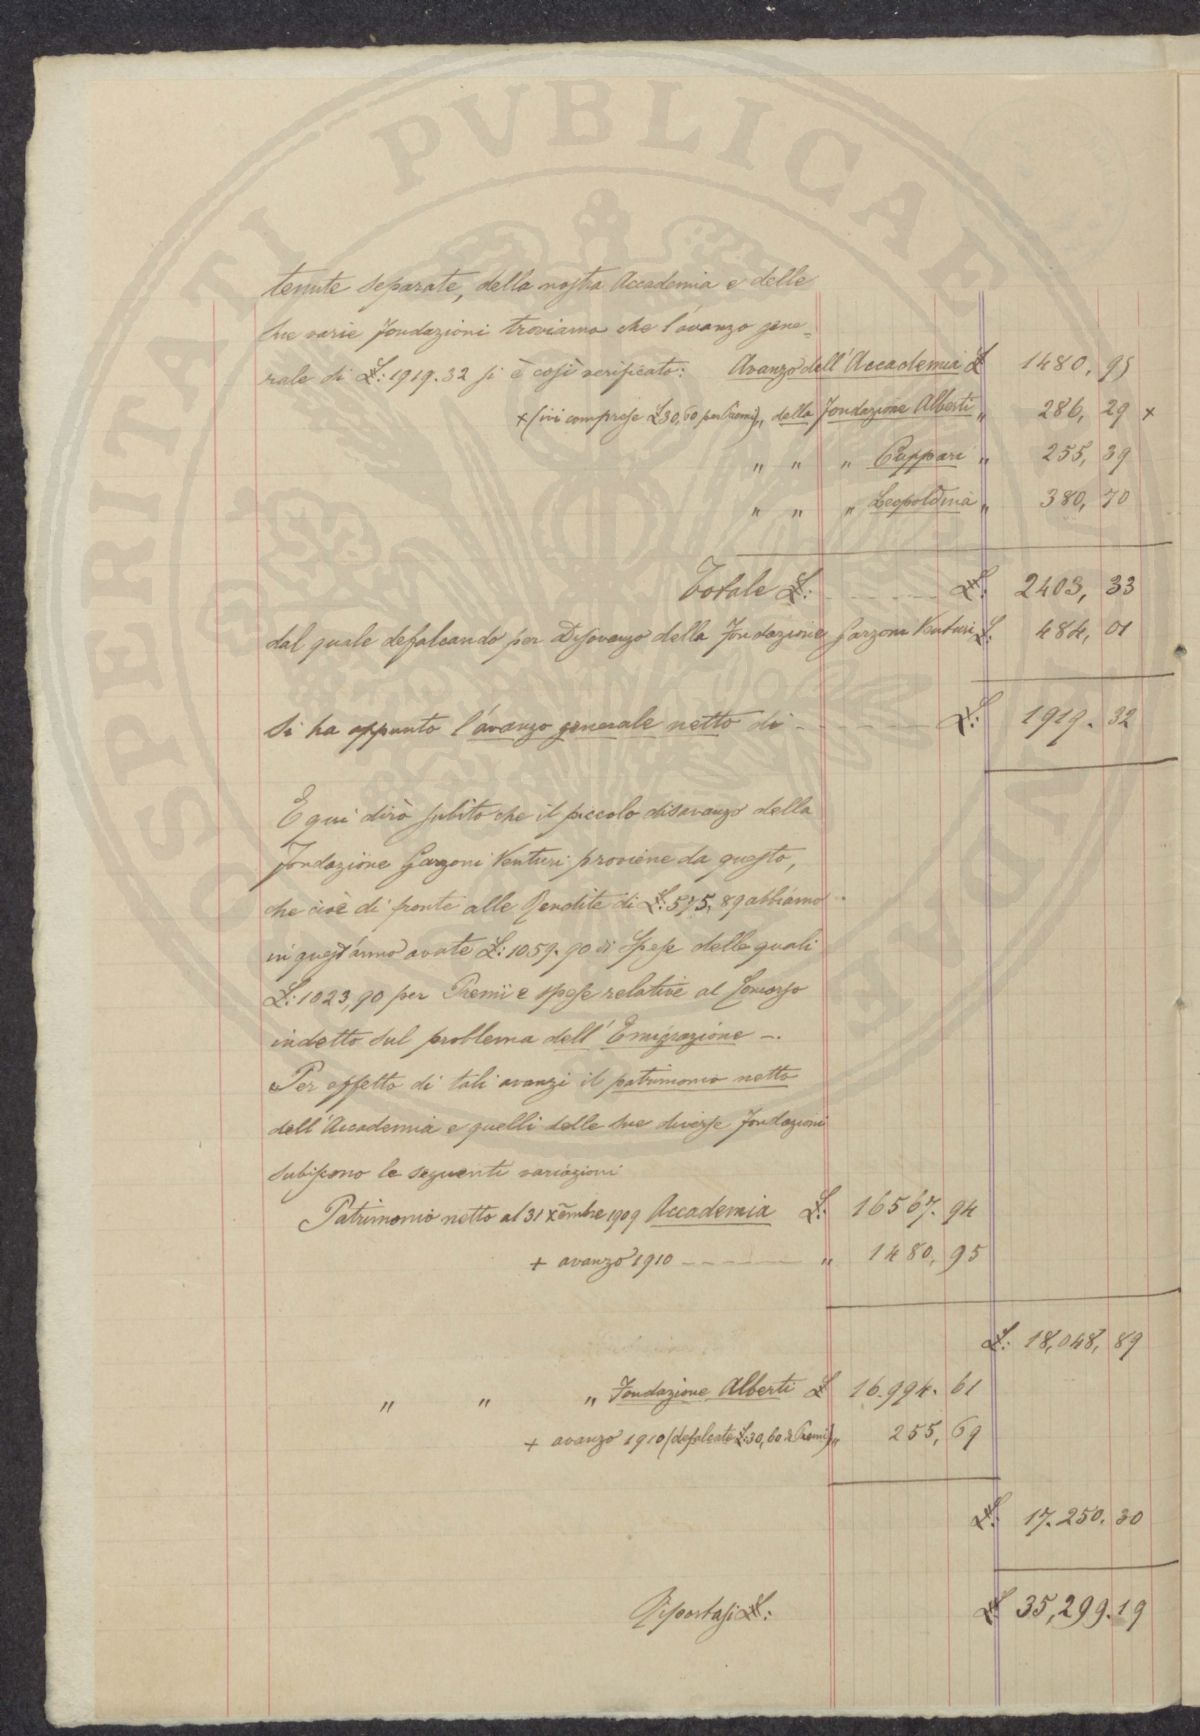 PROSPERITATI PVBLICAE
tenute separate, della nostra Accademia e delle
sue varie fondazioni troviamo che l'avanzo gene=
rale di £: 1919.32 si è così verificato: Avanzo dell'Accademia £ 1480, 95
x (ivi comprese £30,60 per Premi) „ della Fondazione Alberti „ 286, 29 x
„ „ „ Cuppari „ 255, 39
„ „ „ Leopoldina „ 380, 70
Totale £: £: 2403, 33
dal quale defalcando per Disavanzo della Fondazione Garzoni Venturi £: 484, 01
Si ha appunto l'avanzo generale netto di £: 1919. 32
E qui dirò subito che il piccolo disavanzo della
Fondazione Garzoni Venturi proviene da questo,
che cioè di fronte alle Rendite di £: 575,89 abbiamo
in quest'anno avute £: 1059.90 di Spese delle quali
£: 1023,90 per Premii e spese relative al Concorso
indetto sul problema dell'Emigrazione –.
Per effetto di tali avanzi il patrimonio netto
dell'Accademia e quelli delle sue diverse Fondazioni
subiscono le seguenti variazioni
Patrimonio netto al 31 Xembre 1909 Accademia £: 16567. 94
+ avanzo 1910 „ 1480, 95
£: 18,048, 89
„ „ „ Fondazione Alberti £ 16.994. 61
+ avanzo 1910 (defalcate £:30,60 di Premi) „ 255, 69
£: 17.250. 30
Riportasi £: £ 35,299.19